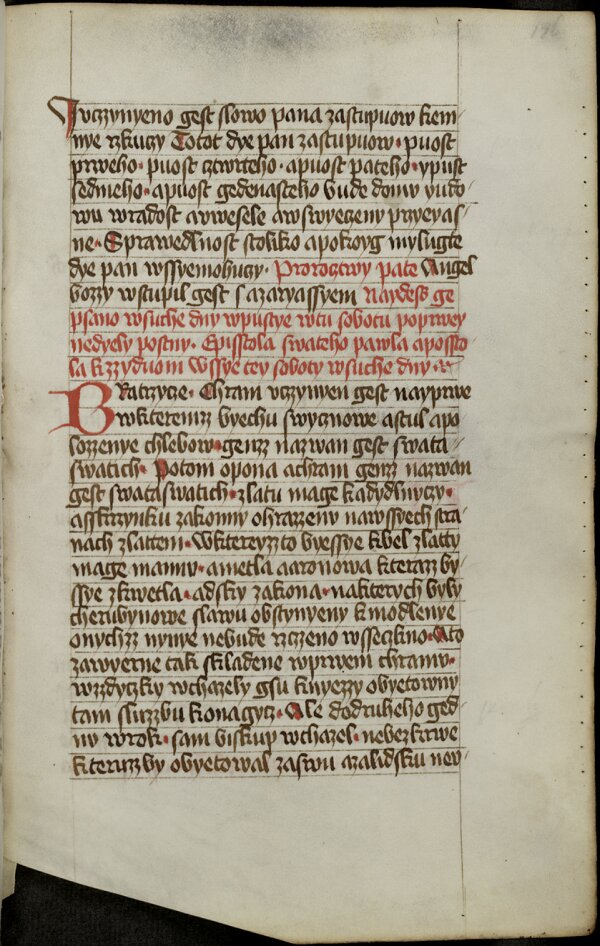 I vczynyeno gest slowo pana zastupuow kem
nye rzkuczy Totot dye pan zastupuow · puost
prweho · puost cztwrteho · apuost pateho · ypust
sedmeho · apuost gedenasteho bude domu yudo
wu wradost awwesele awswyeczeny przyeyas
ne · Sprawedlnost stoliko apokoyg mylugte
dye pan wssyemohuczy · Prorocztwy pate Angel
bozzy wstupil gest s azaryassyem Naydess ge
psano wsuche dny wpustye wtu sobotu poprwey
nedyely postny · Episstola swateho pawla aposto
la kzzyduom Wssye tey soboty wsuche dny ·
Bratrzye · Chram vczynyen gest nayprwe
wkteremz byechu swycznowe astul apo
lozzenye chlebow · genz nazwan gest swata
swatich · Potom opona achram genz nazwan
gest swataswatich · zlatu mage kadydlnyczy ·
asskrzynku zakonny ohrazzeny nawssyech stra
nach zlattem · Wktereyzto byesse kbel zlatty
mage mannu · ametla aaronowa kterazz by
ssye zkwetla · adsky zakona · nakterych byly
cherubynowe slawu obstynyeny kmodlenye
onychzz nynye nebude rzczeno wsseczkno · Ato
zawyerne tak skladene wprwem chramu ·
wzzdyczky wchazely gsu knyezzy obyetowny
tam sluzzbu konagycz · Ale dodruheho ged
nu wrok · sam biskup wchazel · nebezkrwe
kterazzby obyetowal zaswu azalidsku new